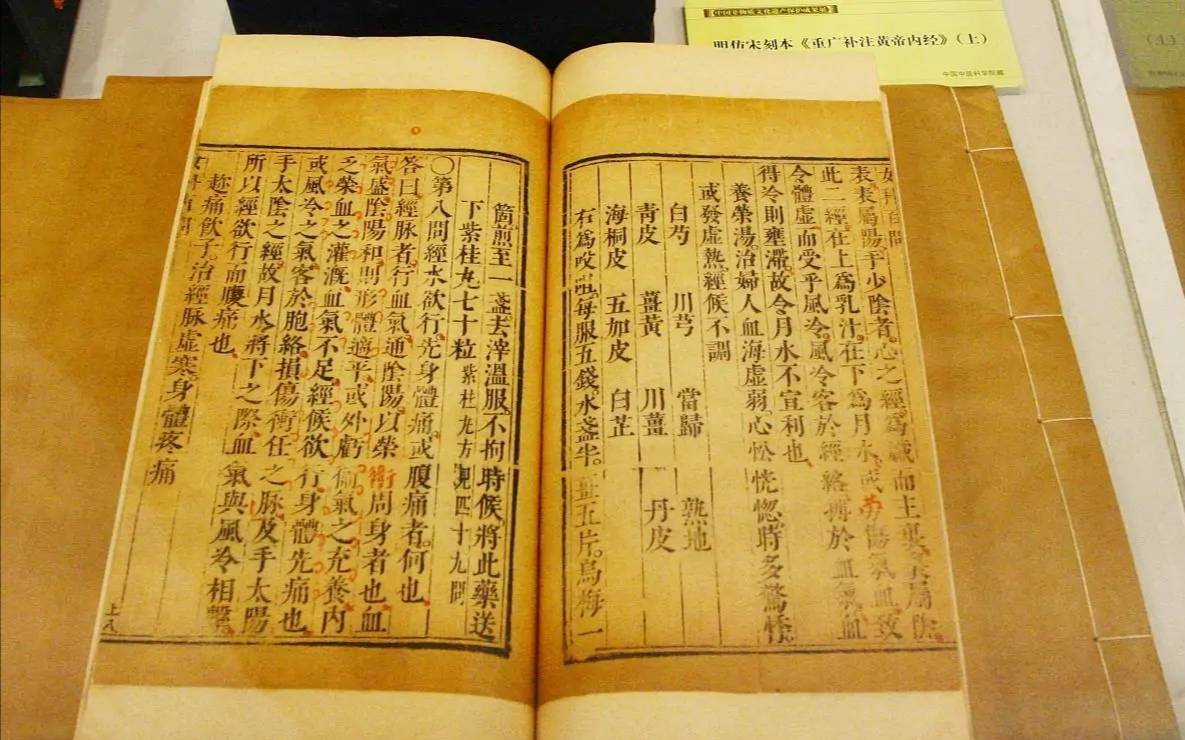 【中国非物质文化遗产保护成果展】
明仿宋刻本《重广补注黄帝内经》（上）
中国中医科学院藏
女科百問
表。表屬陽。手少陰者。心之經。爲藏而主裏。裏屬陰。
此二經。在上爲乳汁。在下爲月水。或勞傷氣血。致
令體虛而受乎風冷。風冷客於經絡。搏於血氣。血
得冷則壅滯。故令月水不宣利也。
養榮湯。治婦人血海虛弱。心忪恍惚。時多驚悸。
或發虛熱。經候不調
白芍 川芎 當歸 熟地
青皮 薑黃 川薑 丹皮
海桐皮 五加皮 白芷
右爲㕮咀。每服五錢。水盞半。薑五片。烏梅一
箇。煎至一盞。去滓溫服。不拘時候。將此藥送
下紫桂丸七十粒 紫桂丸方見四十九問
〇第八問經水欲行。先身體痛。或腹痛者。何也
答曰。經脈者。行血氣。通陰陽。以榮衛周身者也。血
氣盛。陰陽和。則形體適平。或外虧衛氣之充養。內
乏榮血之灌溉。血氣不足。經候欲行。身體先痛也。
或風冷之氣。客於胞絡。損傷衝任之脈。及手太陽
手太陰之經。故月水將下之際。血氣與風冷相擊。
所以經欲行而腹痛也。
趂痛飲子。治經脈虛寒。身體疼痛
上八